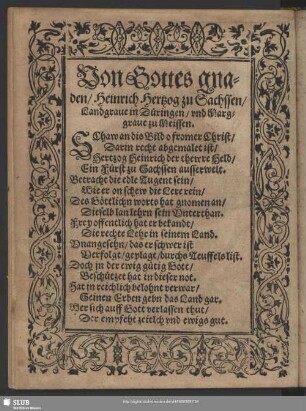 Von Gottes gna-
den / Heinrich Hertzog zu Sachssen /
Landgraue in Düringen / vnd Marg-
graue zu Meissen.
SChaw an dis Bild o fromer Christ /
Darin recht abgemalet ist /
Hertzog Heinrich der thewre Held /
Ein Fürst zu Sachssen auserwelt.
Betracht die edle Tugent sein /
Wie er on schew die Lere rein /
Des Göttlichn worts hat gnomen an /
Dieselb lan lehrn sein Vnterthan.
Frey offentlich hat er bekandt /
Die rechte Lehr in seinem Land.
Vnangesehn / das er schwer ist
Verfolgt / geplagt / durchs Teuffels list.
Doch in der ewig gütig Gott /
Beschützet hat in dieser not.
Hat in reichlich belohnt verwar /
Seinen Erben gebn das Land gar.
Wer sich auff Gott verlassen thut /
Der empfeht zeitlich vnd ewigs gut.
SLUB
Wir führen Wissen.